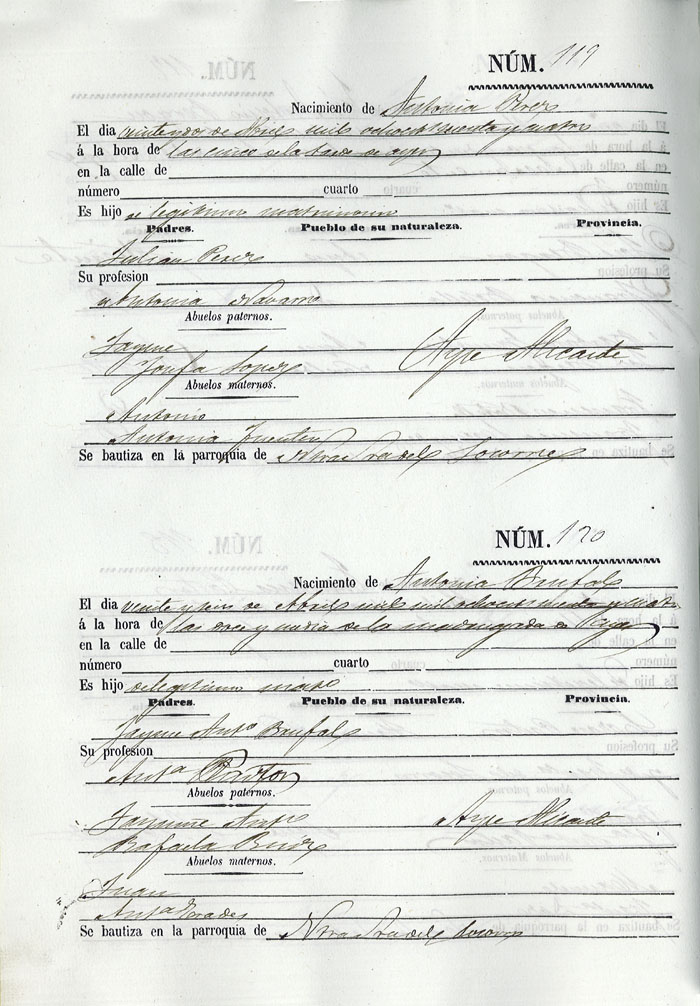 NÚM. 119
Nacimiento de Antonia Perez
El dia de Abril mil ochocs y cuatro
á la hora de las cinco de la tarde de ayer
en la calle de
número cuarto
Es hijo de legitimo matrimonio
Padres. Pueblo de su naturaleza. Provincia.
Julian Perez
Su profesion
Antonia Navarro
Abuelos paternos.
Jayme
Josefa Lopez Aspe Alicante
Abuelos maternos.
Antonio
Antonia Fuentes
Se bautiza en la parroquia de Ntra Sra del Socorro
NÚM. 120
Nacimiento de Antonia Brufal
El dia veinte y seis de Abril mil mil ochocs y cuatro
á la hora de las once y media de la madrugada de
en la calle de
número cuarto
Es hijo de legitimo matro
Padres. Pueblo de su naturaleza. Provincia.
Jayme Anto Brufal
Su profesion
Anta Pastor
Abuelos paternos.
Jayme Aspe Alicante
Rafaela
Abuelos maternos.
Juan
Anta
Se bautiza en la parroquia de Ntra Sra del Socorro